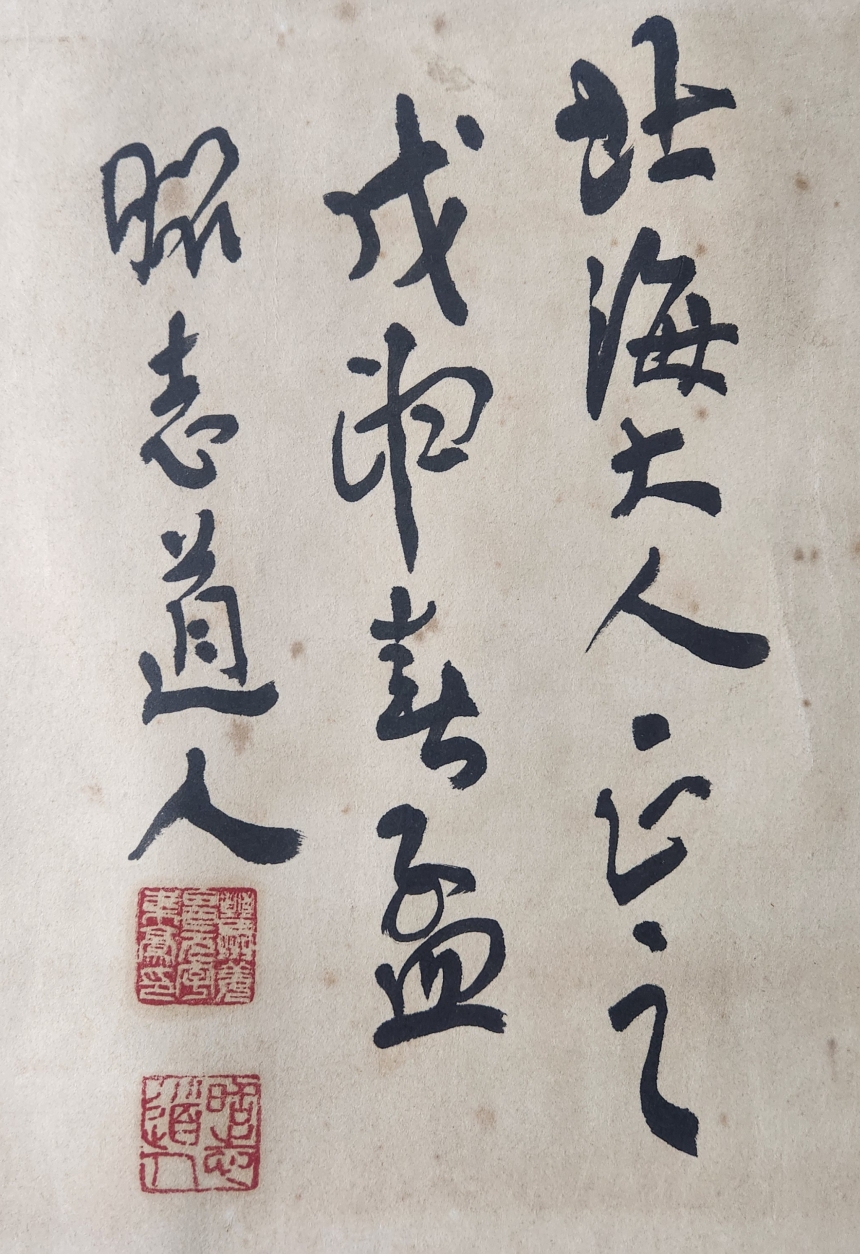 北海大人正之
戊申春孟
昭志道人
昭志道人